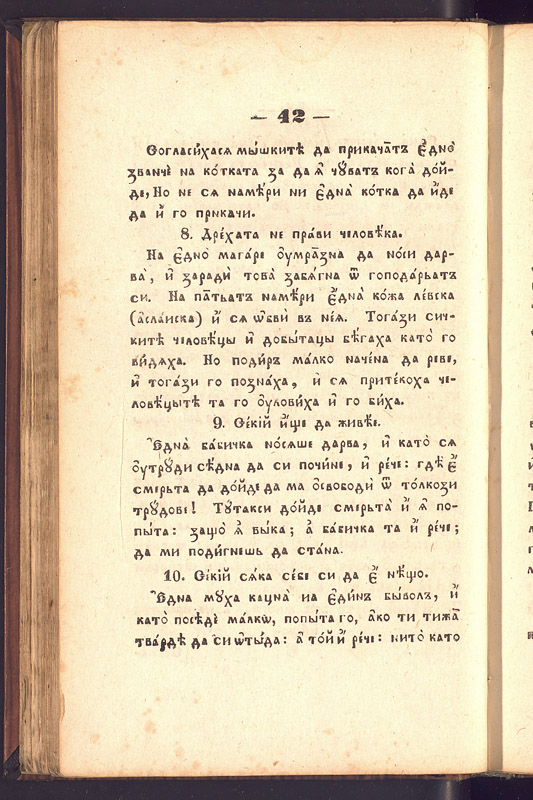 — 42 —
Согласи́хася мы́шките да прикача́тъ є҆дно̀
званчѐ на ко́тката за да ѧ҆̀ чꙋ́ватъ кога̀ до́й-
де, Но не ся наме́ри ни є҆дна̀ ко́тка да и҆́де
да и҆̀ го прикачи.
8. Дре́хата не пра́ви человѣ́ка.
На є҆дно̀ мага́ре ѹ҆мра́зна да но́си дар-
ва̀, и҆̀ зарадѝ това̀ забѧ́гна ѿ господа́рьатъ
си. На па́тьатъ наме́ри є҆дна̀ ко́жа ле́вска
(а҆слаиска) и҆̀ ся ѡ҆бвѝ въ не́ѧ. Тога́зи сич-
китѐ человѣ́цы и҆̀ добы́тацы бѣ́гаха като̀ го
ви́дяха. Но поди́ръ ма́лко наче́на да реве,
и҆̀ тога́зи го позна́ха, и҆̀ ся прите́коха че-
ловѣ́цытѣ та го ѹ҆лови́ха и҆̀ го би́ха.
9. Се́кїй и҆́ще да живѣ́е.
Є҆дна̀ ба́бичка но́сяше дарва, и҆̀ като̀ ся
ѹ҆трꙋ́ди сѣ́дна да си почи́не, и҆̀ ре́че: гдѣ̀ є҆̀
смерьта да до́йде да ма ѡ҆свободѝ ѿ то́лкози
трꙋ́дове! Тꙋ́такси до́йде смерьта̀ и҆̀ ѧ҆̀ по-
пы́та: защо̀ ѧ҆̀ вы́ка; а҆̀ ба́бичка та и҆̀ ре́че;
да ми поди́гнешь да ста́на.
10. Се́кїй ся́ка се́бе си да є҆̀ нѣ́що.
Є҆дна̀ мꙋха кацна̀ на є҆ди́нъ бы́волъ, и҆̀
като̀ посѣ́де ма́лкѡ, попы́та го, а҆́ко ти тижа̀
тва́рдѣ да си ѿты́да: а҆̀ то́й и҆̀ ре́че: нито̀ като